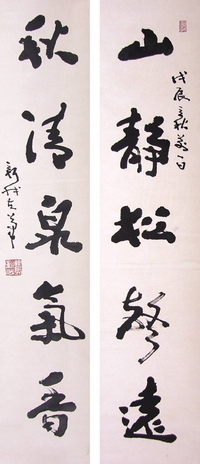 山靜松聲遠
戊辰之秋
秋清泉氣香